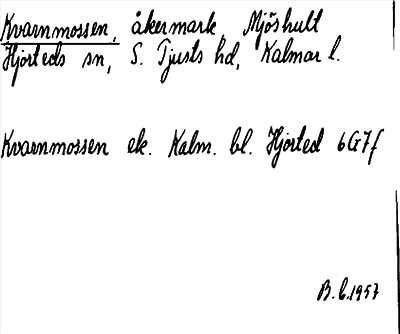 Kvarnmossen, åkermark, Mjöshult
Hjorteds sn, S. Tjusts hd, Kalmar l.
Kvarnmossen ek. Kalm. bl. Hjorted 6G7f
B.C.1957